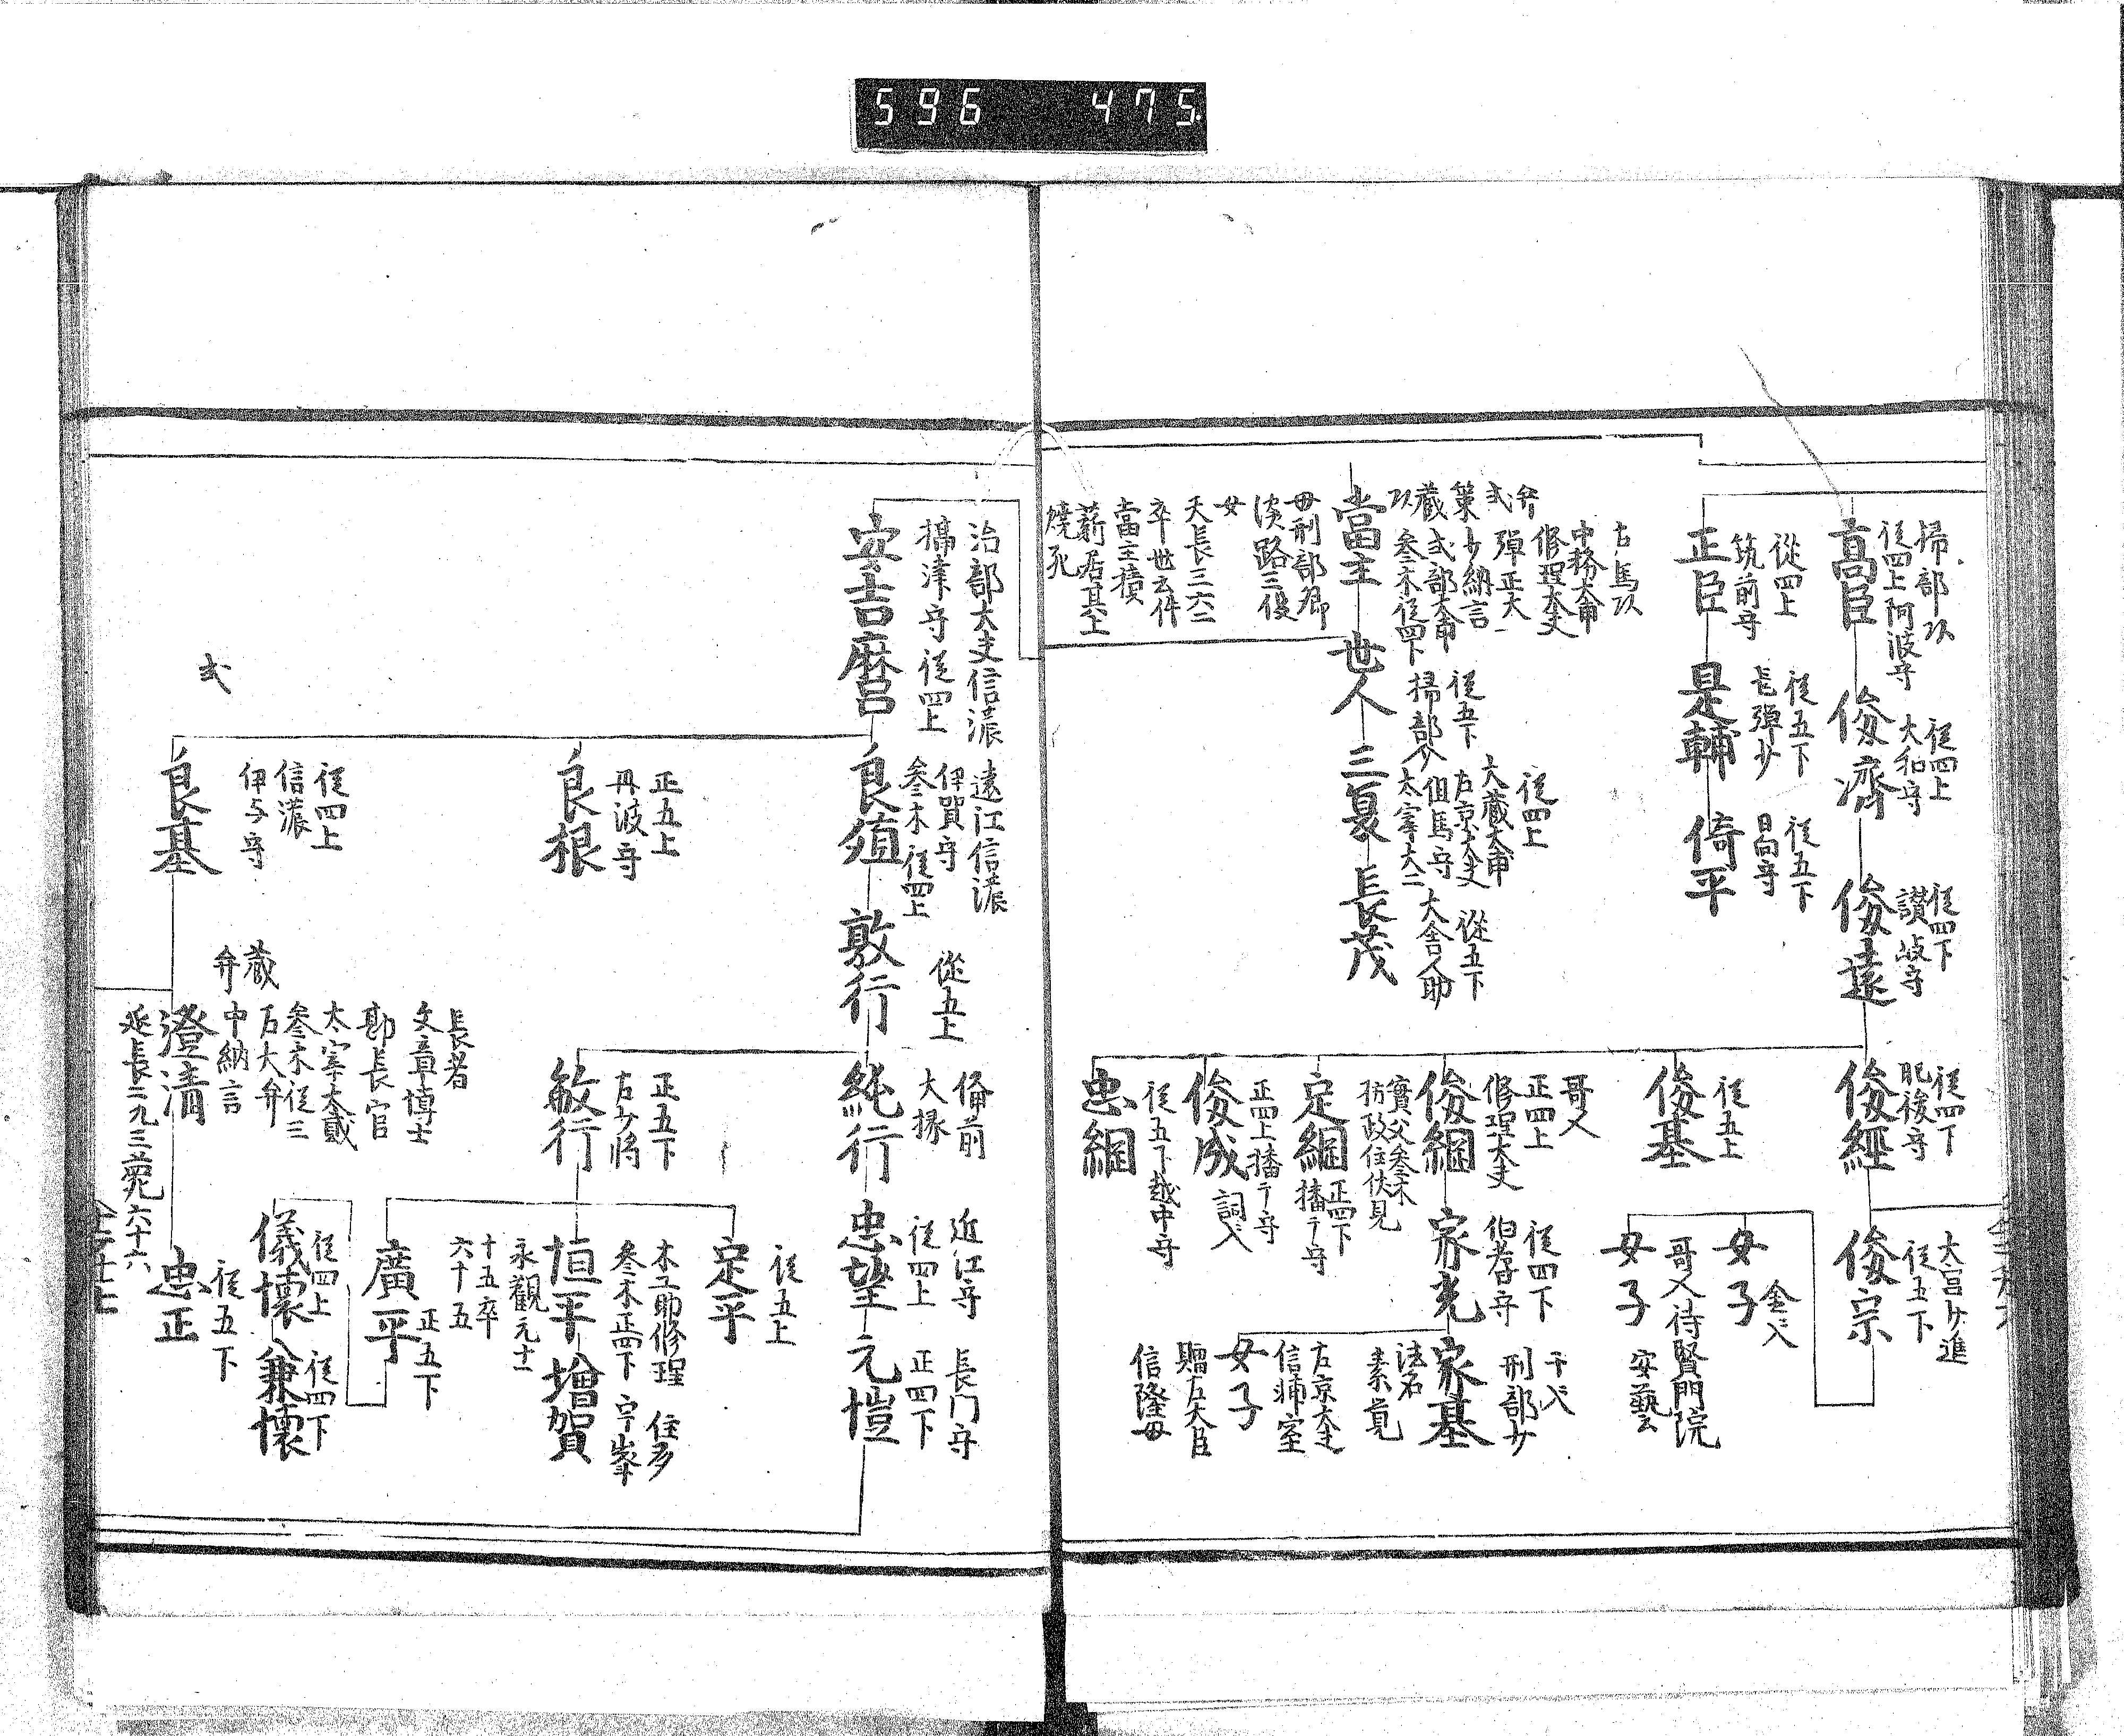 596 475
掃部
從四上阿波守
高臣
從四上
大和守
俊濟
從四下
讃岐守
俊遠
從四下
肥後守
俊經
大宮少進
從五下
俊宗
從四上
筑前守
正臣
從五下
是輔
從五下
日向守
倚平
從五上
俊基
女子
哥人待賢門院
安藝
女子
右馬
中務大甫
修理大夫
弾正大
少納言
式部大甫
参木従四下
當主
母刑部卿
淡路三後
女
天長三六二
卒世云件
當主積
薪居其上
燒死
世人
從五下
掃部少
三夏
從四上
大蔵大甫
右京大夫
但馬守
太宰大二
長茂
從五下
大舎人助
哥人
正四上
修理大夫
俊綱
實父参木
定綱
正四下
播广守
俊成
正四上播广守
忠綱
從五下越中守
從四下
伯耆守
家光
刑部少
家基
法名
素覚
女子
左京大夫
信輔室
贈左大臣
信隆母
治部大夫信濃
攝津守從四上
安吉麿
遠江信濃
伊賀守
参木從四上
良殖
從五上
敦行
備前
大掾
純行
近江守
從四上
忠望
長门守
正四下
元愷
正五上
丹波守
良根
從四上
信濃
伊与守
良基
式
正五下
右少将
敏行
從五上
定平
木工助修理
参木正四下
恒平
永觀元十一
十五卒
六十五
住多
增賀
正五下
廣平
長者
文章博士
勘長官
太宰大貳
参木従三
右大弁
中納言
蔵
弁
澄清
延長二九三薨六十六
從四上
儀懷
從四下
兼懷
從五下
忠正